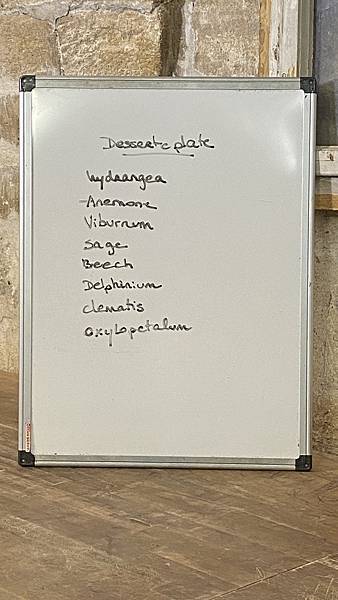 Dessert plate
hydrangea
Anemone
Viburnum
Sage
Beech
Delphinium
clematis
oxylopetalum